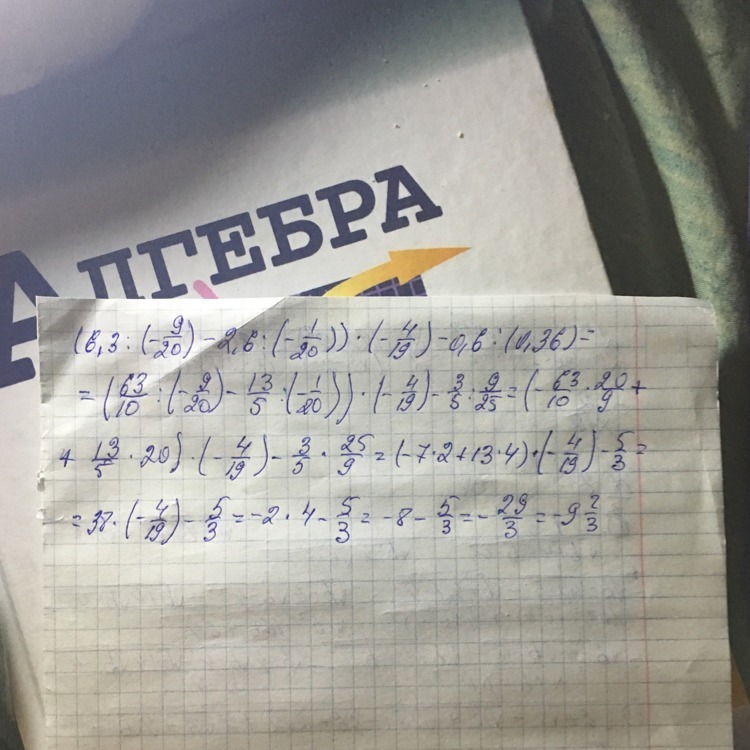 АЛГЕБРА
(6,3 : (-9/20) - 2,6 : (-1/20)) · (-4/19) - 0,6 : (0,36) =
= (63/10 : (-9/20) - 13/5 : (-1/20)) · (-4/19) - 3/5 : 9/25 = (-63/10 · 20/9 +
+ 13/5 · 20) · (-4/19) - 3/5 · 25/9 = (-7·2 + 13·4) · (-4/19) - 5/3 =
= 38 · (-4/19) - 5/3 = -2 · 4 - 5/3 = -8 - 5/3 = -29/3 = -9 2/3